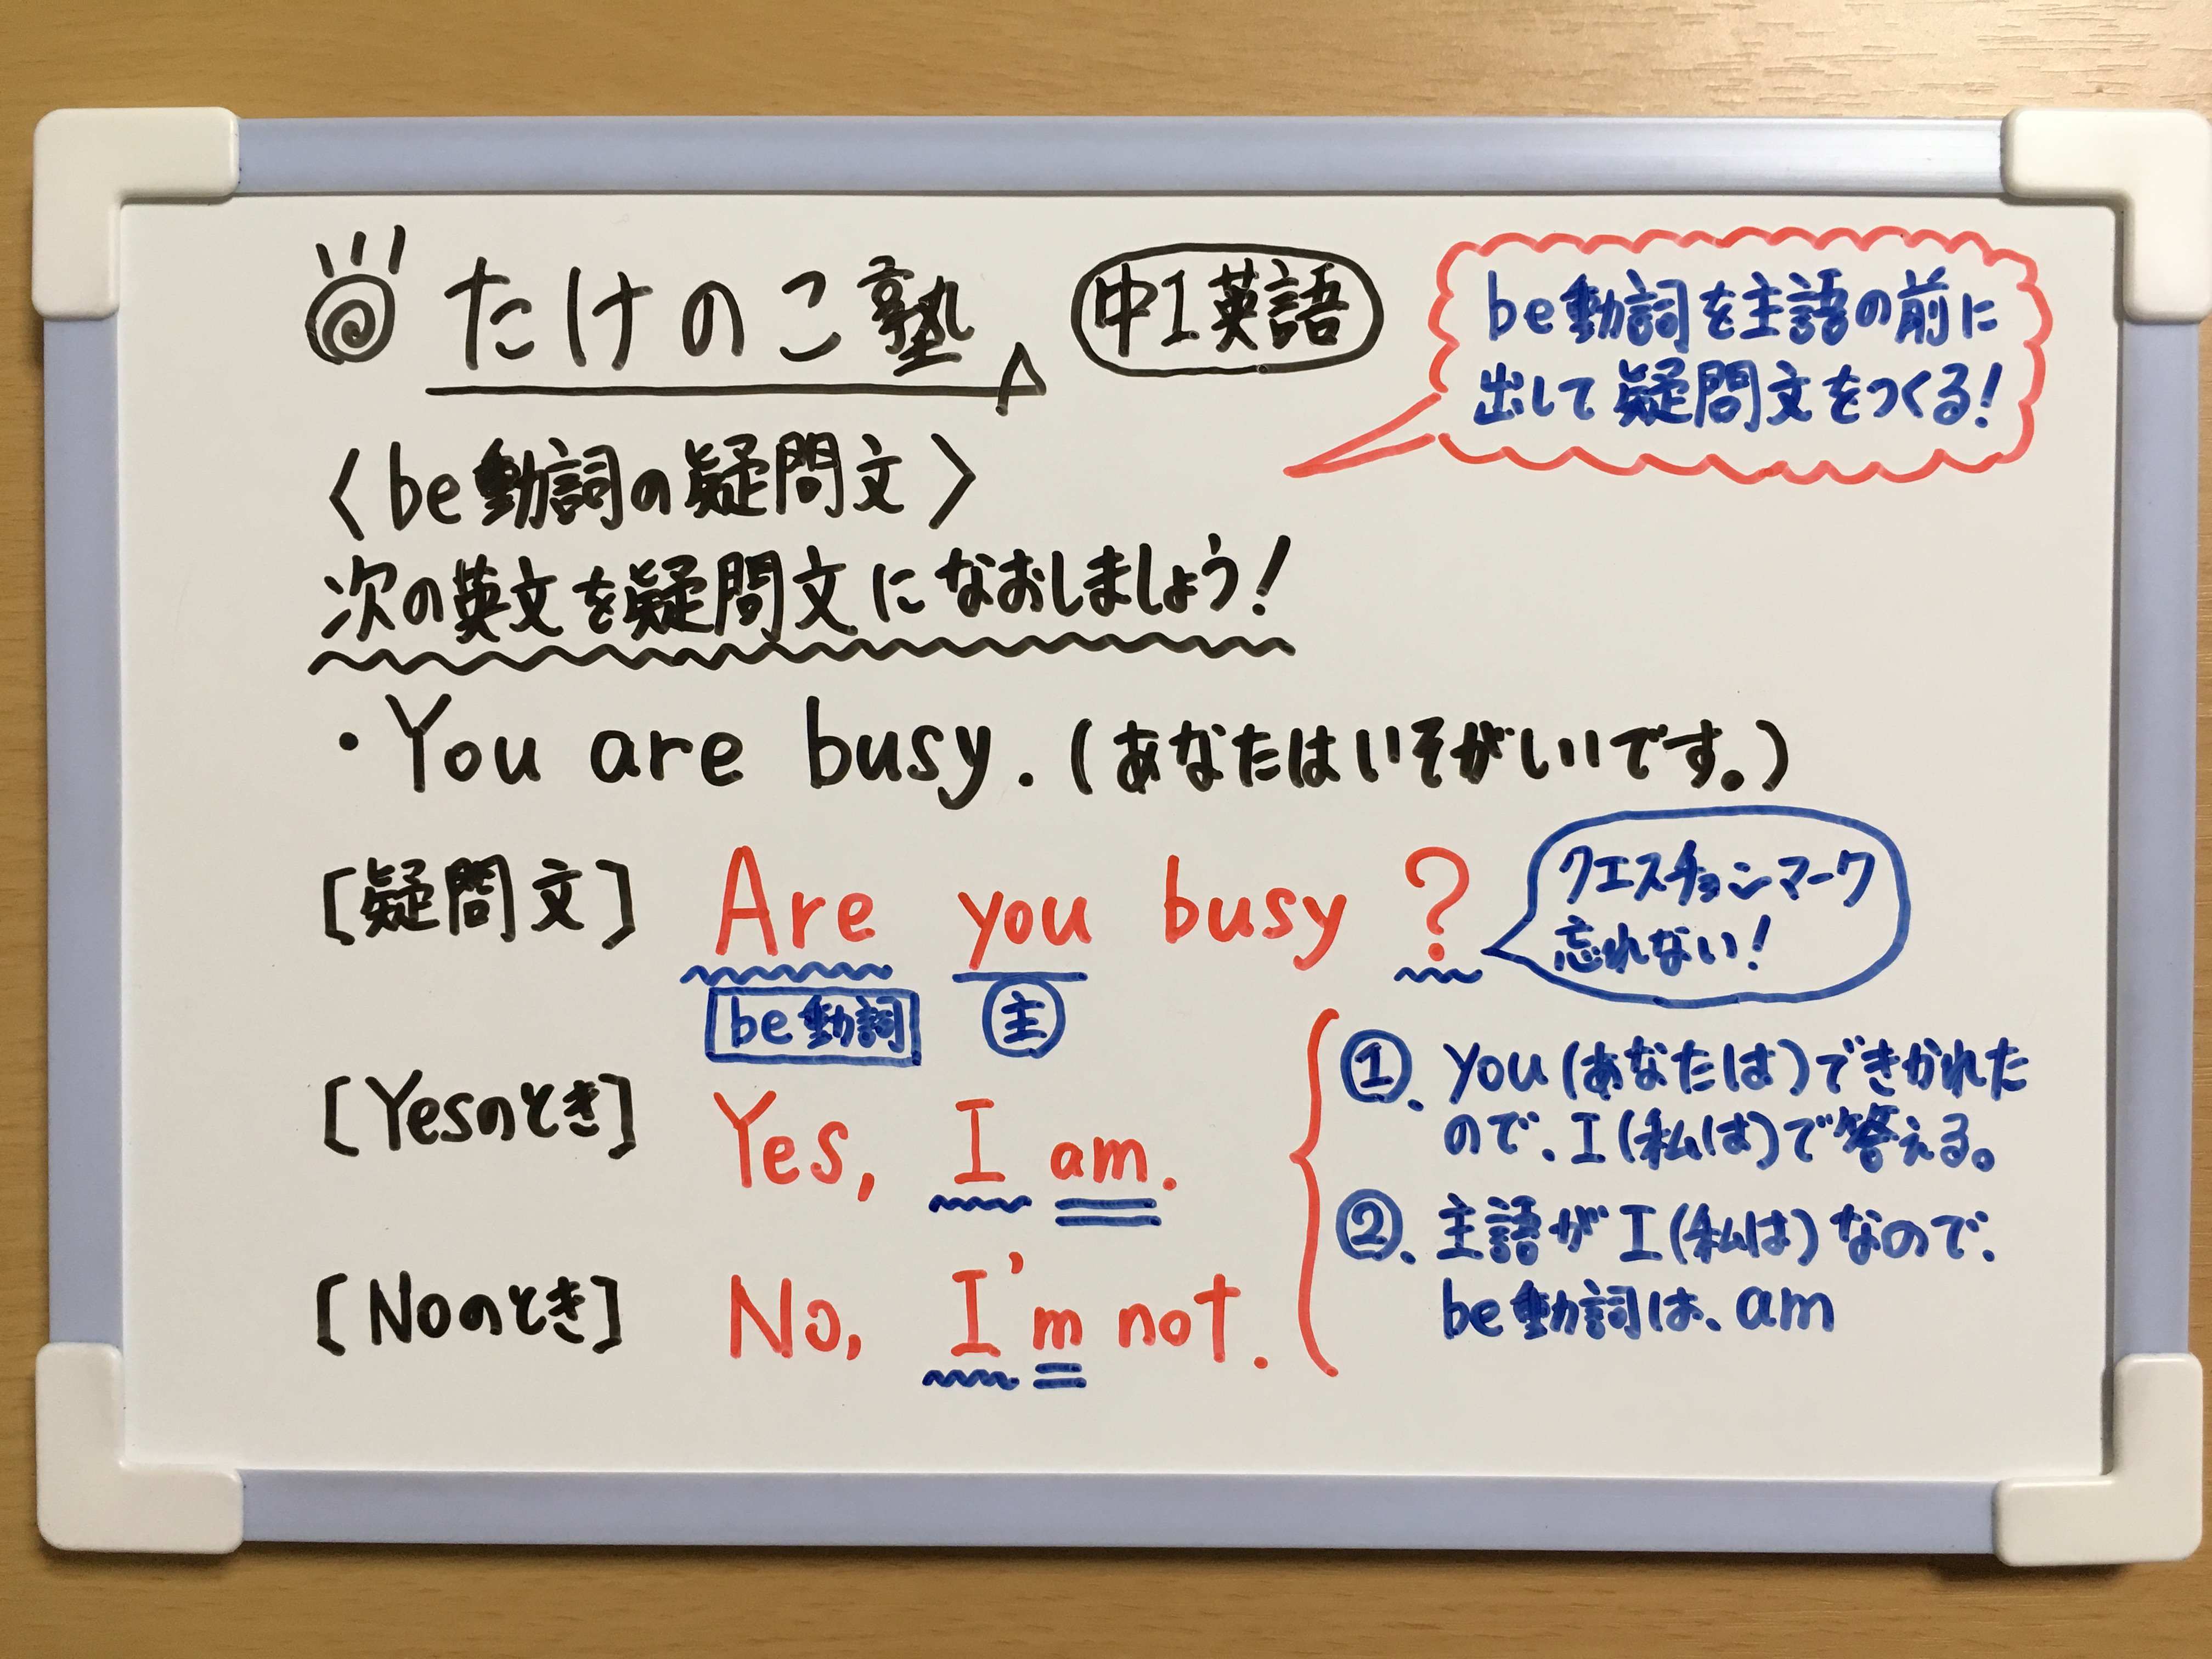 たけのこ塾
中1英語
be動詞を主語の前に
出して疑問文をつくる!
〈be動詞の疑問文〉
次の英文を疑問文になおしましょう!
・You are busy.(あなたはいそがしいです。)
[疑問文] Are you busy ?
クエスチョンマーク
忘れない!
be動詞 主
[Yesのとき] Yes, I am.
[Noのとき] No, I'm not.
①. you(あなたは)できかれた
ので、I(私は)で答える。
②. 主語がI(私は)なので、
be動詞は、am